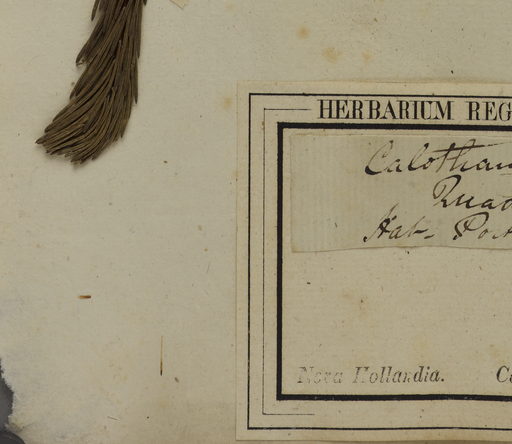 HERBARIUM REG
Calotham
Quad
Hab. Port
Nova Hollandia. C